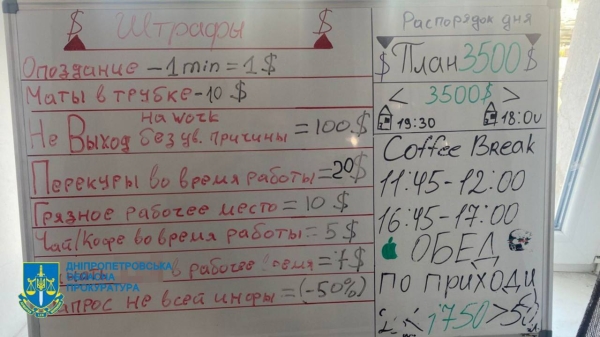 $ Штрафы $
Опоздание - 1 min = 1 $
Маты в трубке - 10 $
Не Выход на work без ув. причины = 100 $
Перекуры во время работы = 20 $
Грязное рабочее место = 10 $
Чай/Кофе во время работы = 5 $
в рабочее время =
ДНІПРОПЕТРОВСЬКА
ОБЛАСНА
ПРОКУРАТУРА
Запрос не всей инфы = (-50%)
Распорядок дня
$ План 3500 $
< 3500$ >
19:30 18:00
Coffee Break
11:45-12:00
16:45-17:00
ОБЕД
по приходи
1750 >